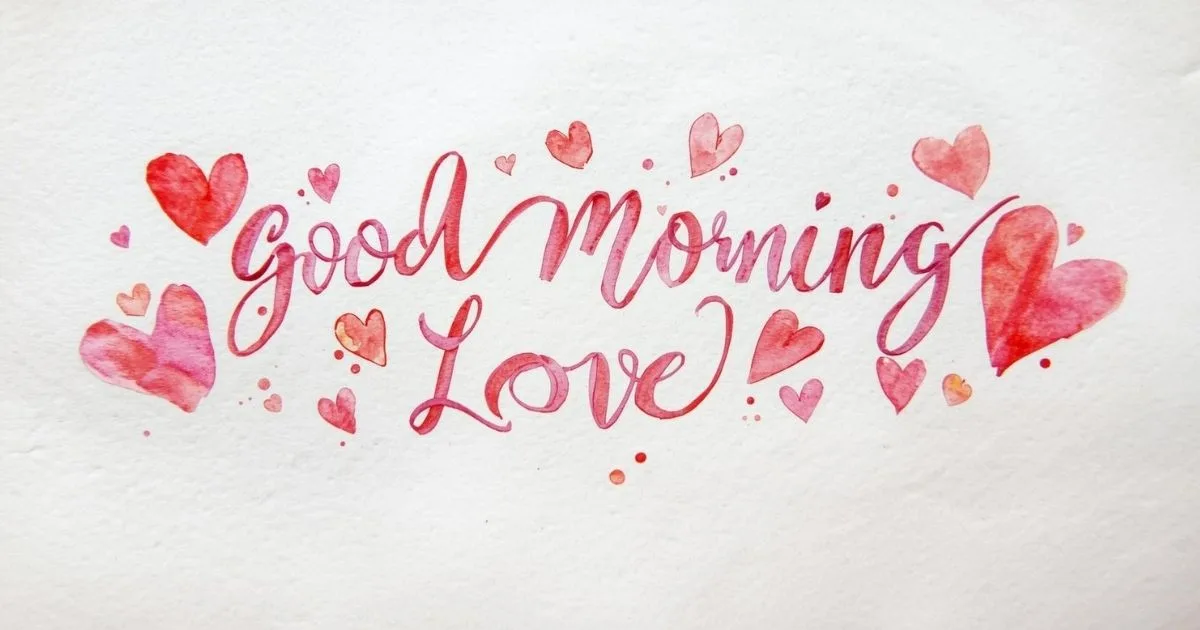 Good Morning
Love